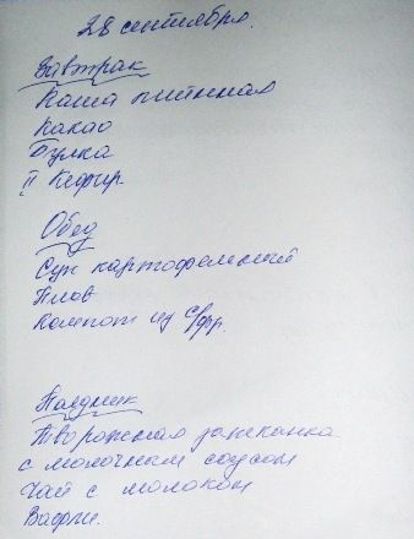 28 сентября.
Завтрак
Каша пшённая
Какао
Булка
II Кефир
Обед
Суп картофельный
Плов
Компот из с/фр.
Полдник
Творожная запеканка
с молочным соусом
Чай с молоком
Вафли.